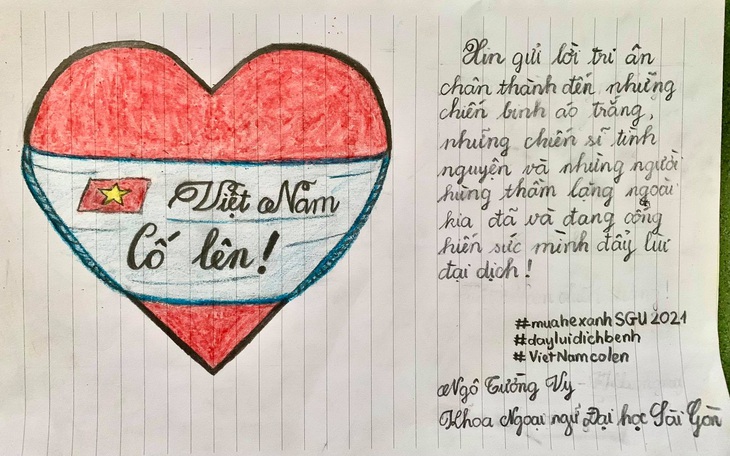 Việt Nam
Cố lên!
Xin gửi lời tri ân
chân thành đến những
chiến binh áo trắng,
những chiến sĩ tình
nguyện và những người
hùng thầm lặng ngoài
kia đã và đang cống
hiến sức mình đẩy lui
đại dịch!
#muahexanhSGU2021
#dayluidichbenh
#VietNamcolen
Ngô Tường Vy
Khoa Ngoại ngữ Đại học Sài Gòn